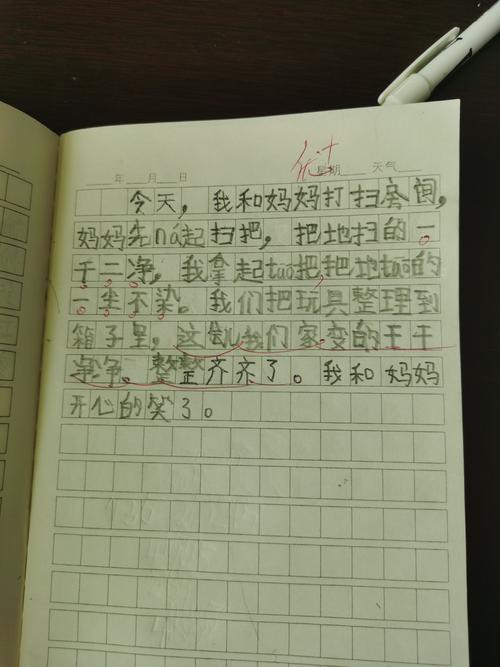 优+
年 月 日 星期 天气
今天，我和妈妈打扫房间，
妈妈先ná起扫把，把地扫的一
干二净，我拿起tuō把，把地tuō的
一尘不染。我们把玩具整理到
箱子里，这儿我们家变的干干
净净、整整齐齐了。我和妈妈
开心的笑了。